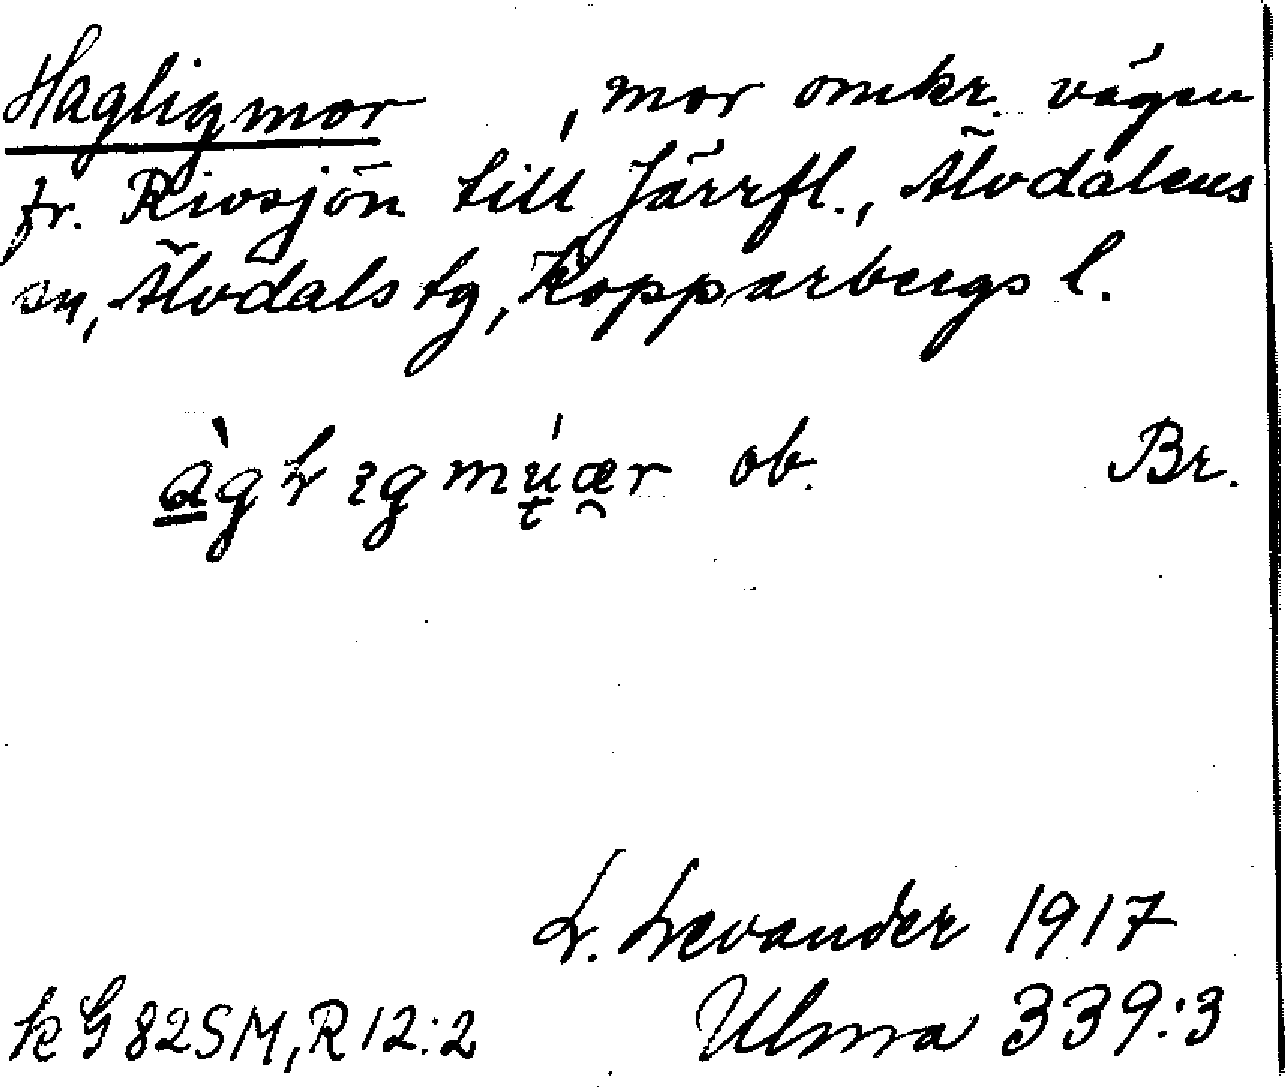 Hagligmor , mor omkr. vägen
fr. Rivsjön till Järrfl., Älvdalens
sn, Älvdals tg, Kopparbergs l.
ob. Br.
L. Levander 1917
kG82SM,R12:2 Ulma 339:3